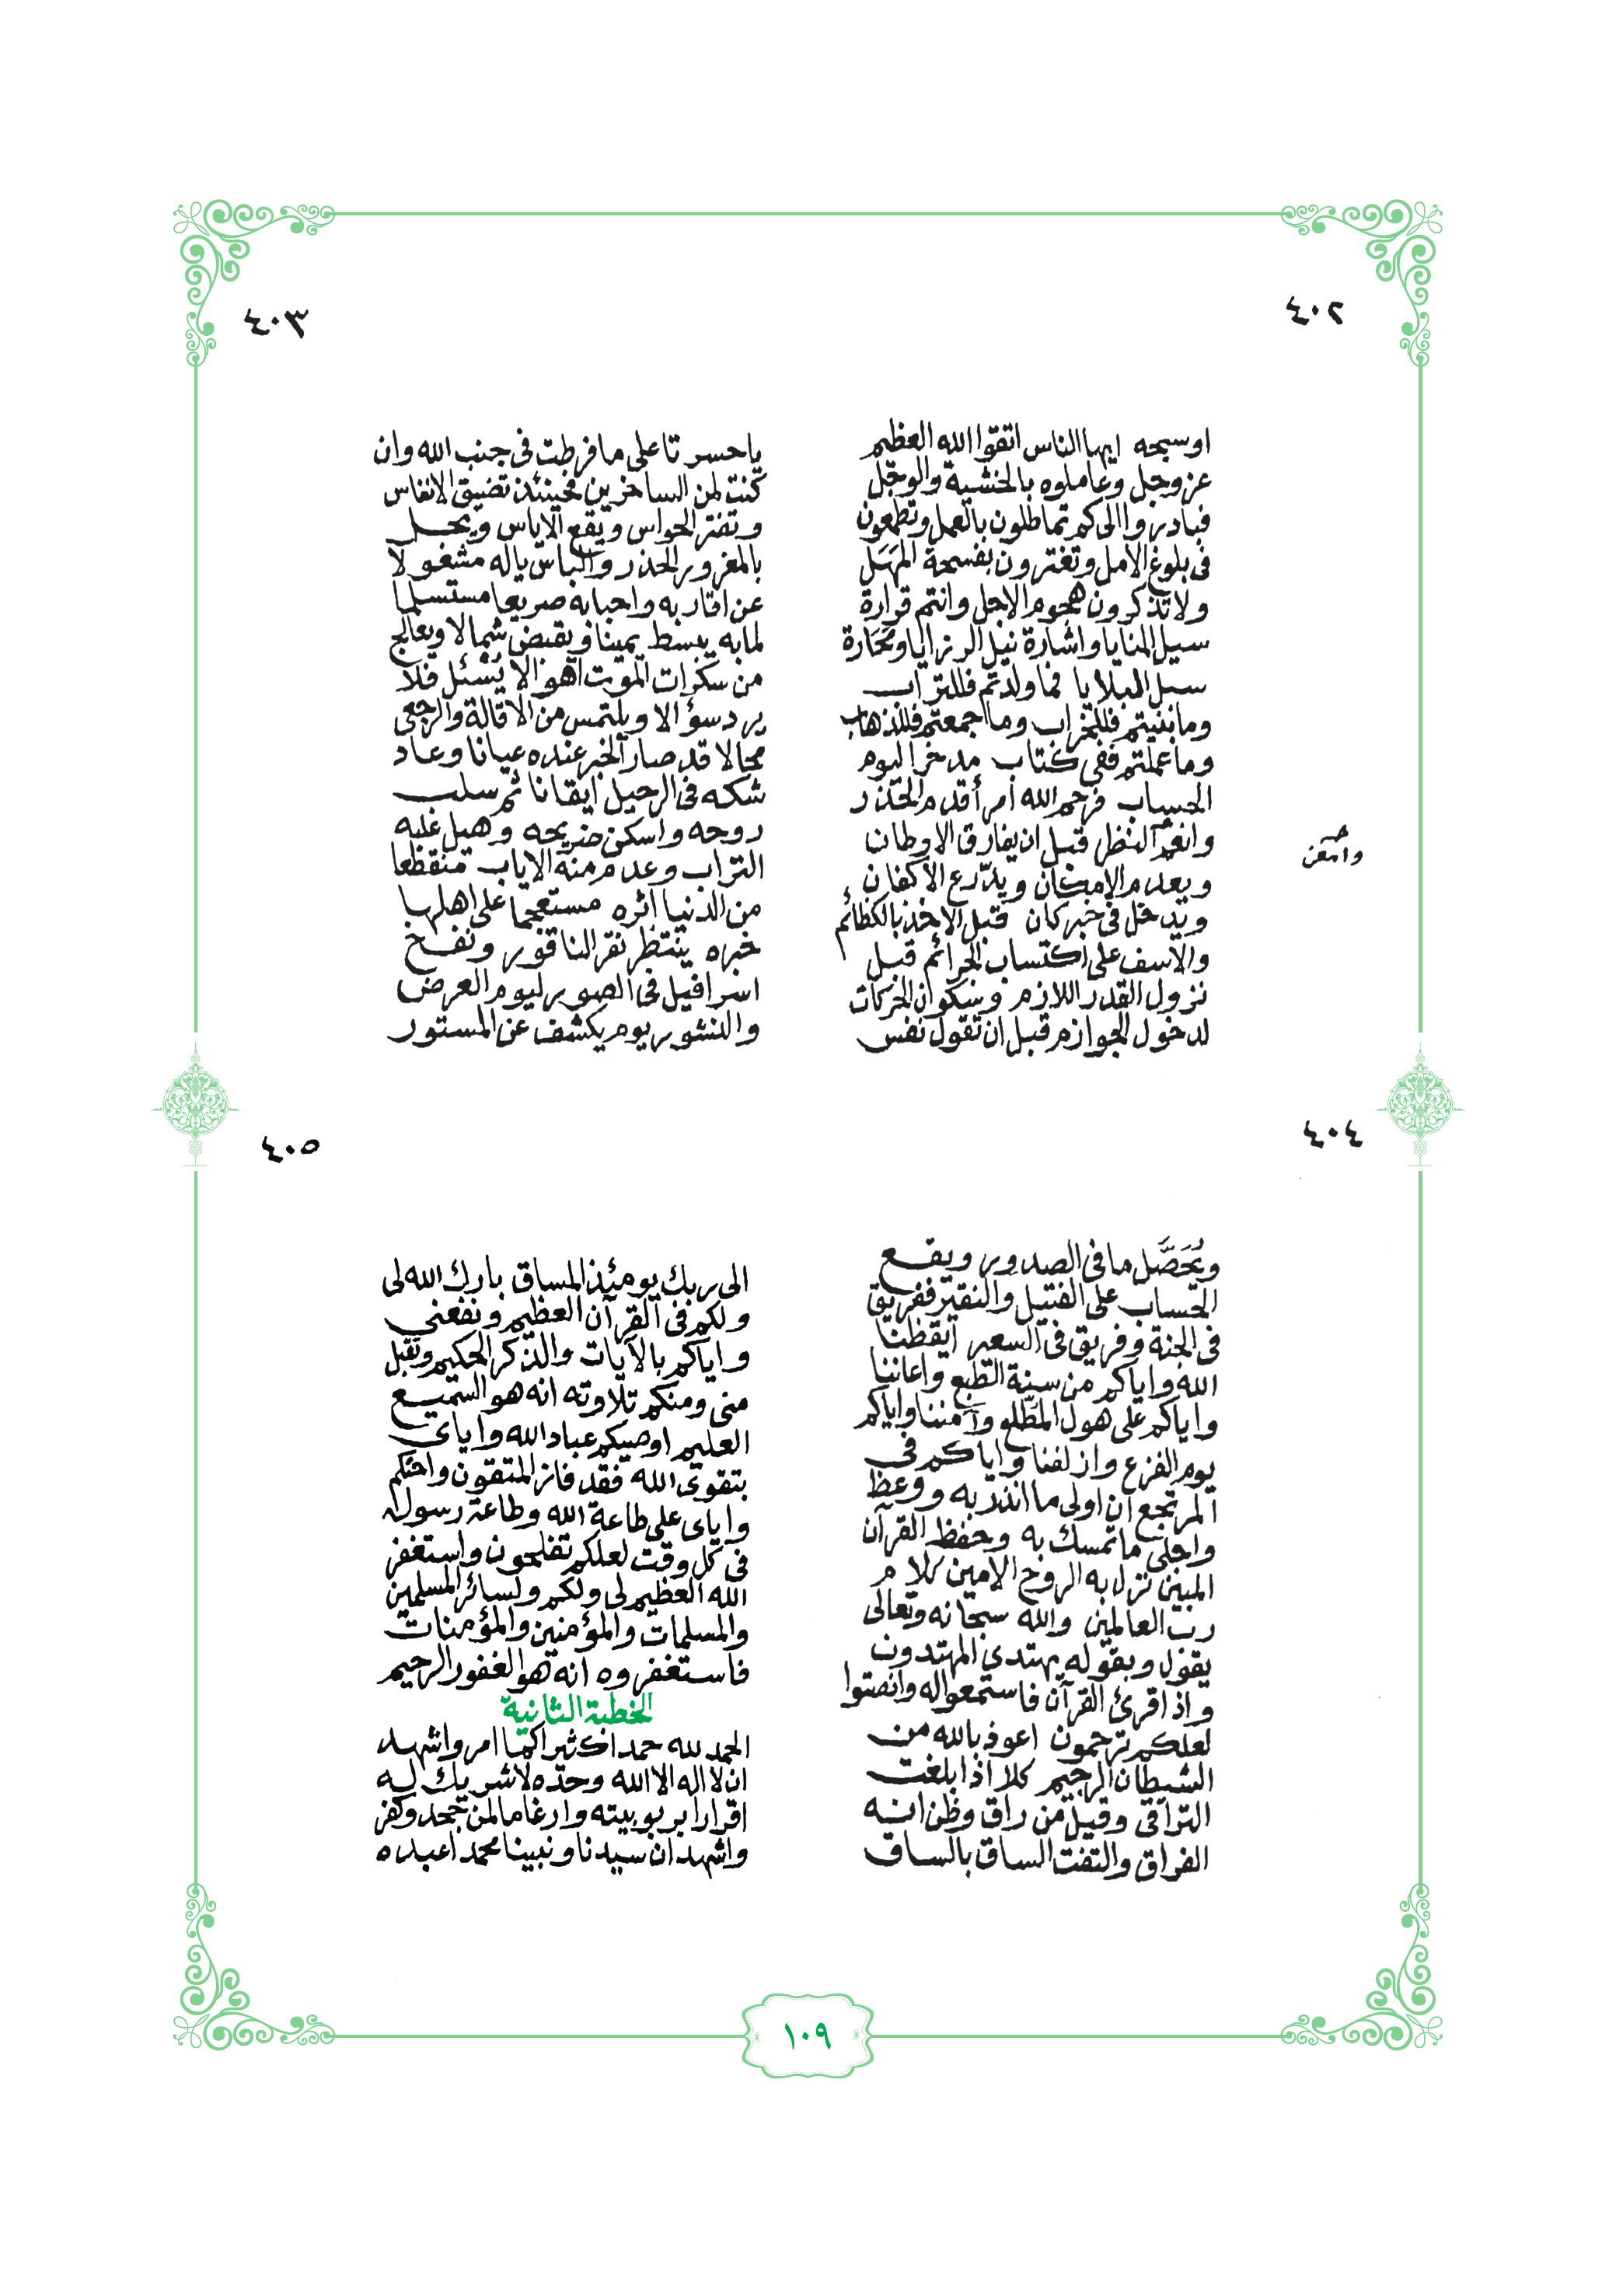 ٤٠٢
اوسبحه ايها الناس اتقوا الله العظيم
عز وجل وعاملوه بالخشية والوجل
فبادروا الى كم تماطلون بالعمل وتطمعون
فى بلوغ الامل وتغترون بفسحة المَهَل
ولا تذكرون هجوم الاجل وانتم قرارة
سيل المنايا واشارة نيل الرزايا ومَحَارة
سبل البلايا فما ولدتم فللتراب
وما بنيتم فللخراب وما جمعتم فللذهاب
وما عملتم ففى كتاب مدخر اليوم
الحساب فرحم الله أمرأ قدم الحذر
وانعم النظر قبل ان يفارق الاوطان
وامعن
ويعدم الامكان ويدّرع الاكفان
ويدخل فى خبر كان قبل الاخذ بالكظائم
والاسف على اكتساب الجرائم قبل
نزول القدر اللازم وسكون الحركات
لدخول الجوازم قبل ان تقول نفس
٤٠٣
ياحسرتا على ما فرطت فى جنب الله وان
كنت لمن الساخرين فحينئذ تضيق الانفاس
وتفتر الحواس ويقع الاياس ويحل
بالمغرور الحذر والباس ياله مشغولا
عن اقاربه واحبابه صريعا مستسلما
لمابه يبسط يمينا ويقبض شمالا ويعالج
من سكرات الموت اهوالا يُسْئل فلا
يرد سؤالا ويلتمس من الاقالة والرجعى
محالا قد صار الخبر عنده عيانا وعاد
شكه فى الرحيل ايقانا ثم سلب
روحه واسكن ضريحه وهيل عليه
التراب وعدم منه الاياب منقطعا
من الدنيا اثره مستعجما على اهلها
خبره ينتظر نقر الناقور ونفخ
اسرافيل فى الصور ليوم العرض
والنشور يوم يكشف عن المستور
٤٠٤
ويُحَصَّل ما فى الصدور ويقع
الحساب على الفتيل والنقير ففريق
فى الجنة وفريق فى السعير ايقظنا
الله واياكم من سنة الطبع واعاننا
واياكم على هول المطّلع وآمننا واياكم
يوم الفزع وازلفنا واياكم فى
المرتجع ان اولى ما انذر به ووعظ
واجلى ما تمسك به وحفظ القرآن
المبين نزل به الروح الامين كلام
رب العالمين والله سبحانه وتعالى
يقول وبقوله يهتدى المهتدون
واذا قرئ القرآن فاستمعوا له وانصتوا
لعلكم ترحمون اعوذ بالله من
الشيطان الرجيم كلا اذا بلغت
التراقى وقيل من راق وظن انه
الفراق والتفت الساق بالساق
٤٠٥
الى ربك يومئذ المساق بارك الله لى
ولكم فى القرآن العظيم ونفعنى
واياكم بالآيات والذكر الحكيم وتقبل
منى ومنكم تلاوته انه هو السميع
العليم اوصيكم عباد الله واياى
بتقوى الله فقد فاز المتقون واحثكم
واياى على طاعة الله وطاعة رسوله
فى كل وقت لعلكم تفلحون واستغفر
الله العظيم لى ولكم ولسائر المسلمين
والمسلمات والمؤمنين والمؤمنات
فاستغفروه انه هو الغفور الرحيم
الخطبة الثانية
الحمد لله حمدا كثيرا كما امر واشهد
ان لا اله الا الله وحده لا شريك له
اقرارا بربوبيته وارغاما لمن جحد وكفر
واشهد ان سيدنا ونبينا محمدا عبده
١٠٩